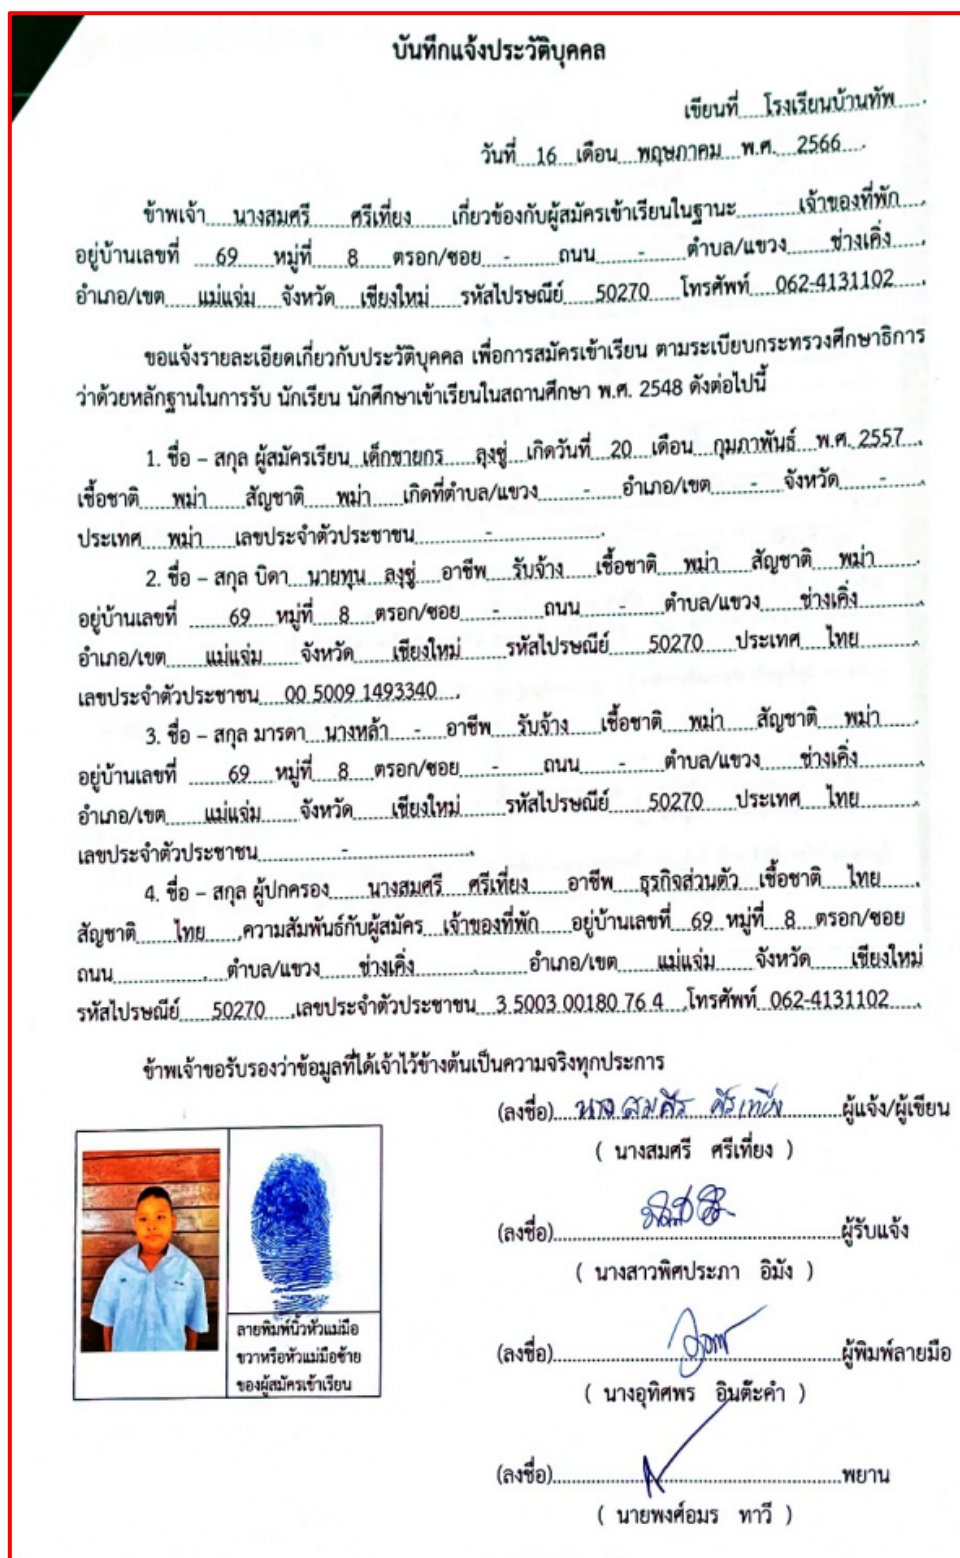 บันทึกแจ้งประวัติบุคคล
เขียนที่ โรงเรียนบ้านทัพ
วันที่ 16 เดือน พฤษภาคม พ.ศ. 2566
ข้าพเจ้า นางสมศรี ศรีเที่ยง เกี่ยวข้องกับผู้สมัครเข้าเรียนในฐานะ เจ้าของที่พัก
อยู่บ้านเลขที่ 69 หมู่ที่ 8 ตรอก/ซอย - ถนน - ตำบล/แขวง ช่างเคิ่ง
อำเภอ/เขต แม่แจ่ม จังหวัด เชียงใหม่ รหัสไปรษณีย์ 50270 โทรศัพท์ 062-4131102
ขอแจ้งรายละเอียดเกี่ยวกับประวัติบุคคล เพื่อการสมัครเข้าเรียน ตามระเบียบกระทรวงศึกษาธิการ
ว่าด้วยหลักฐานในการรับ นักเรียน นักศึกษาเข้าเรียนในสถานศึกษา พ.ศ. 2548 ดังต่อไปนี้
1. ชื่อ – สกุล ผู้สมัครเรียน เด็กชายกร ลุงซู่ เกิดวันที่ 20 เดือน กุมภาพันธ์ พ.ศ. 2557
เชื้อชาติ พม่า สัญชาติ พม่า เกิดที่ตำบล/แขวง - อำเภอ/เขต - จังหวัด -
ประเทศ พม่า เลขประจำตัวประชาชน -
2. ชื่อ – สกุล บิดา นายทุน ลงุซู่ อาชีพ รับจ้าง เชื้อชาติ พม่า สัญชาติ พม่า
อยู่บ้านเลขที่ 69 หมู่ที่ 8 ตรอก/ซอย - ถนน - ตำบล/แขวง ช่างเคิ่ง
อำเภอ/เขต แม่แจ่ม จังหวัด เชียงใหม่ รหัสไปรษณีย์ 50270 ประเทศ ไทย
เลขประจำตัวประชาชน 00 5009 1493340
3. ชื่อ – สกุล มารดา นางหล้า - อาชีพ รับจ้าง เชื้อชาติ พม่า สัญชาติ พม่า
อยู่บ้านเลขที่ 69 หมู่ที่ 8 ตรอก/ซอย - ถนน - ตำบล/แขวง ช่างเคิ่ง
อำเภอ/เขต แม่แจ่ม จังหวัด เชียงใหม่ รหัสไปรษณีย์ 50270 ประเทศ ไทย
เลขประจำตัวประชาชน -
4. ชื่อ – สกุล ผู้ปกครอง นางสมศรี ศรีเที่ยง อาชีพ ธุรกิจส่วนตัว เชื้อชาติ ไทย
สัญชาติ ไทย ,ความสัมพันธ์กับผู้สมัคร เจ้าของที่พัก อยู่บ้านเลขที่ 69 หมู่ที่ 8 ตรอก/ซอย
ถนน , ตำบล/แขวง ช่างเคิ่ง อำเภอ/เขต แม่แจ่ม จังหวัด เชียงใหม่
รหัสไปรษณีย์ 50270 ,เลขประจำตัวประชาชน 3 5003 00180 76 4 ,โทรศัพท์ 062-4131102
ข้าพเจ้าขอรับรองว่าข้อมูลที่ได้เจ้าไว้ข้างต้นเป็นความจริงทุกประการ
(ลงชื่อ) นาง สมศรี ศรีเที่ยง ผู้แจ้ง/ผู้เขียน
( นางสมศรี ศรีเที่ยง )
(ลงชื่อ) ผู้รับแจ้ง
( นางสาวพิศประภา อิมัง )
ลายพิมพ์นิ้วหัวแม่มือ
ขวาหรือหัวแม่มือซ้าย
ของผู้สมัครเข้าเรียน
(ลงชื่อ) ผู้พิมพ์ลายมือ
( นางอุทิศพร อินต๊ะคำ )
(ลงชื่อ) พยาน
( นายพงศ์อมร ทาวี )